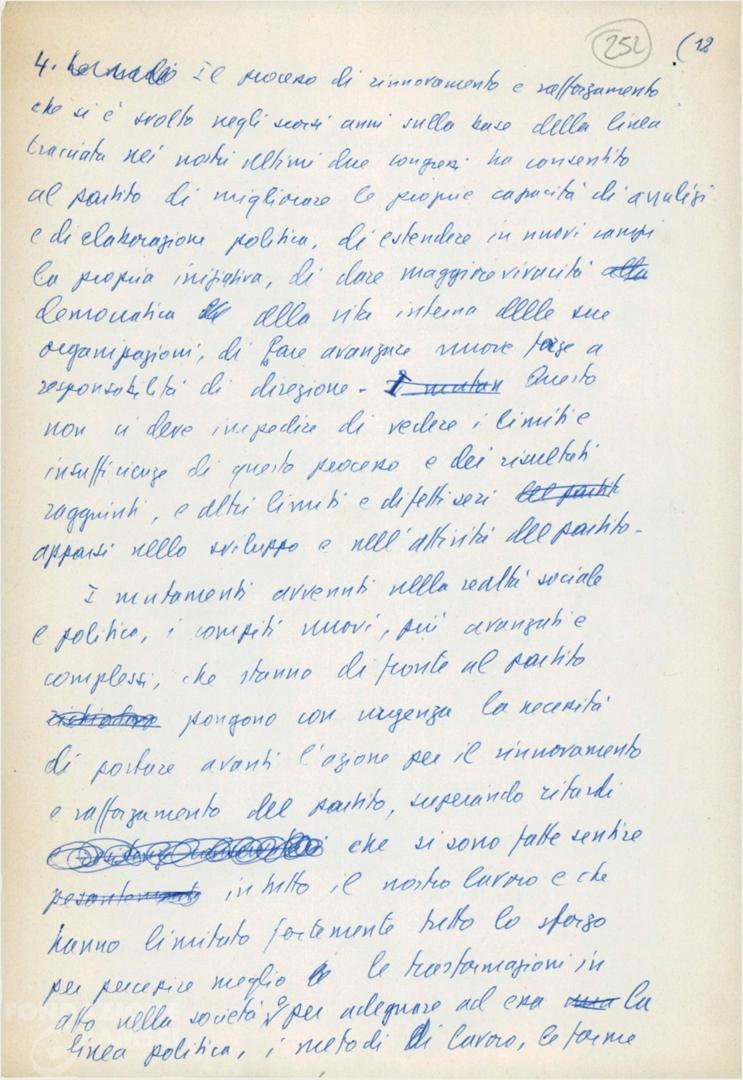 252 (12
4. Il processo di rinnovamento e rafforzamento
che si è svolto negli scorsi anni sulla base della linea
tracciata nei nostri ultimi due congressi ha consentito
al partito di migliorare le proprie capacità di analisi
e di elaborazione politica, di estendere in nuovi campi
la propria iniziativa, di dare maggiore vivacità alla
democratica alla vita interna delle sue
organizzazioni, di fare avanzare nuove forze a
responsabilità di direzione. I mutam Questo
non ci deve impedire di vedere i limiti e
insufficienze di questo processo e dei risultati
raggiunti, e altri limiti e difetti seri del partito
apparsi nello sviluppo e nell'attività del partito.
I mutamenti avvenuti nella realtà sociale
e politica, i compiti nuovi, più avanzati e
complessi, che stanno di fronte al partito
pongono con urgenza la necessità
di portare avanti l'azione per il rinnovamento
e rafforzamento del partito, superando ritardi
che si sono fatte sentire
pesantemente in tutto il nostro lavoro e che
hanno limitato fortemente tutto lo sforzo
per percepire meglio le trasformazioni in
atto nella società e per adeguare ad essa la
linea politica, i metodi di lavoro, le forme